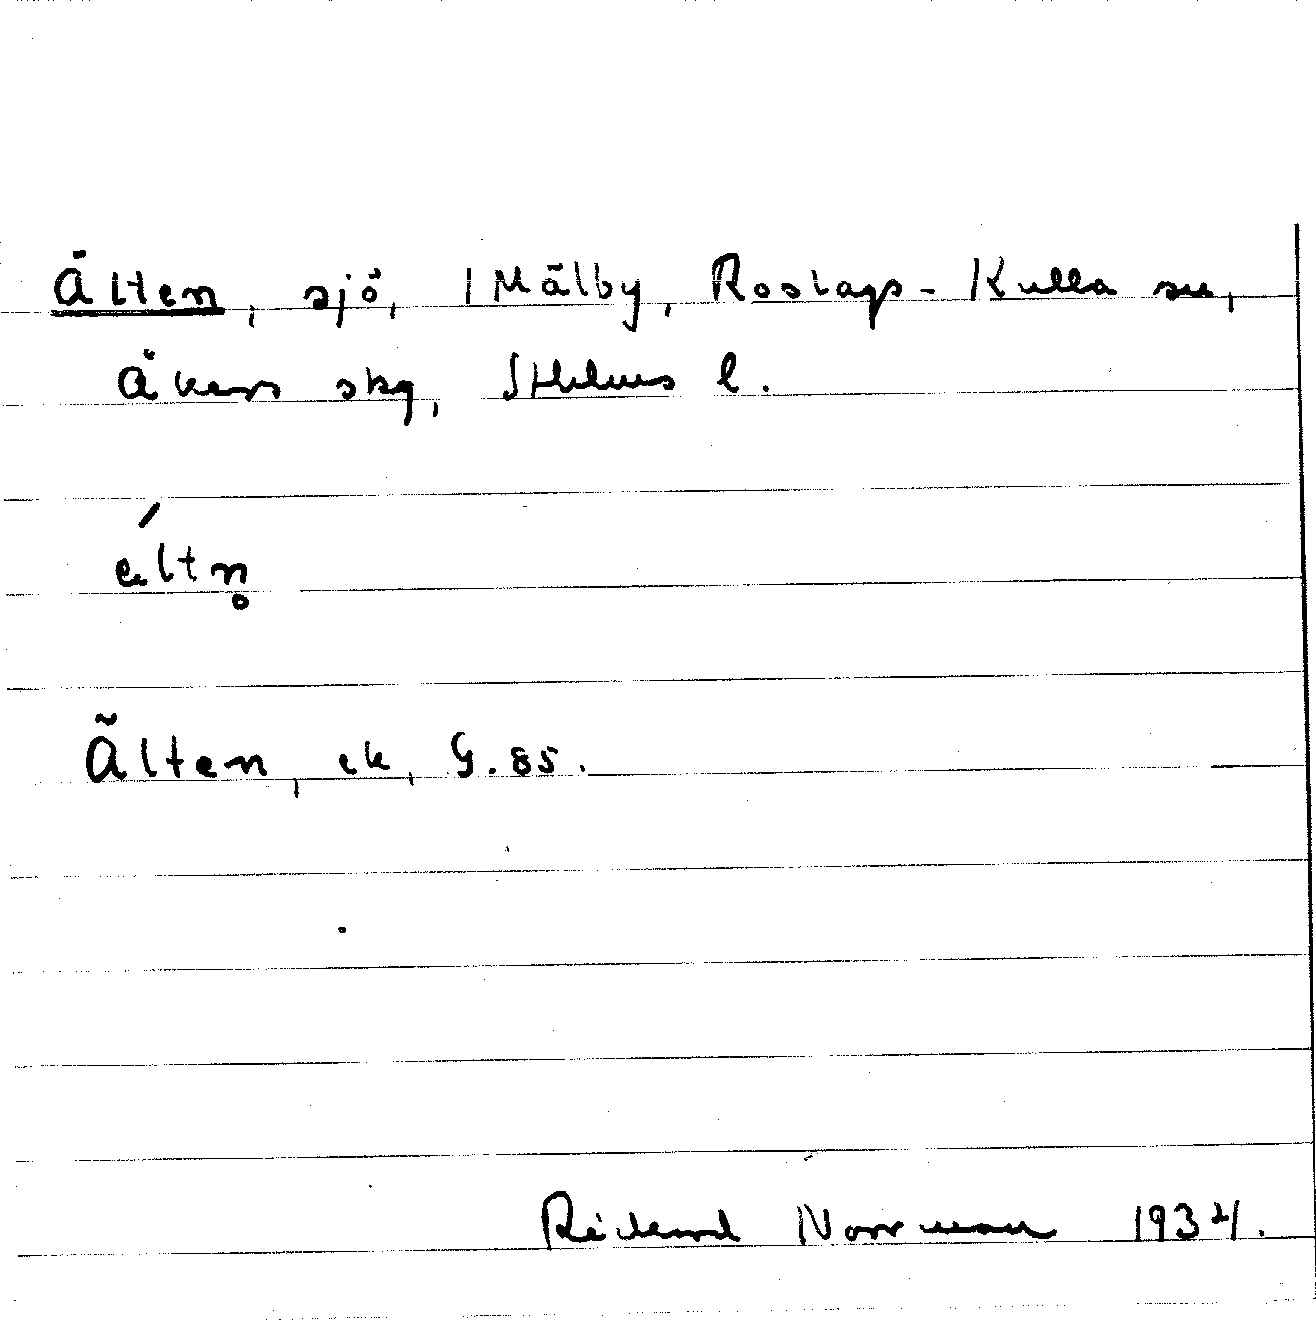 Älten, sjö, 1 Mälby, Roslags-Kulla sn,
Åkers skg, Sthlms l.
ältn̥
Älten, ek, G. 85.
Rickard Norrman 1934.